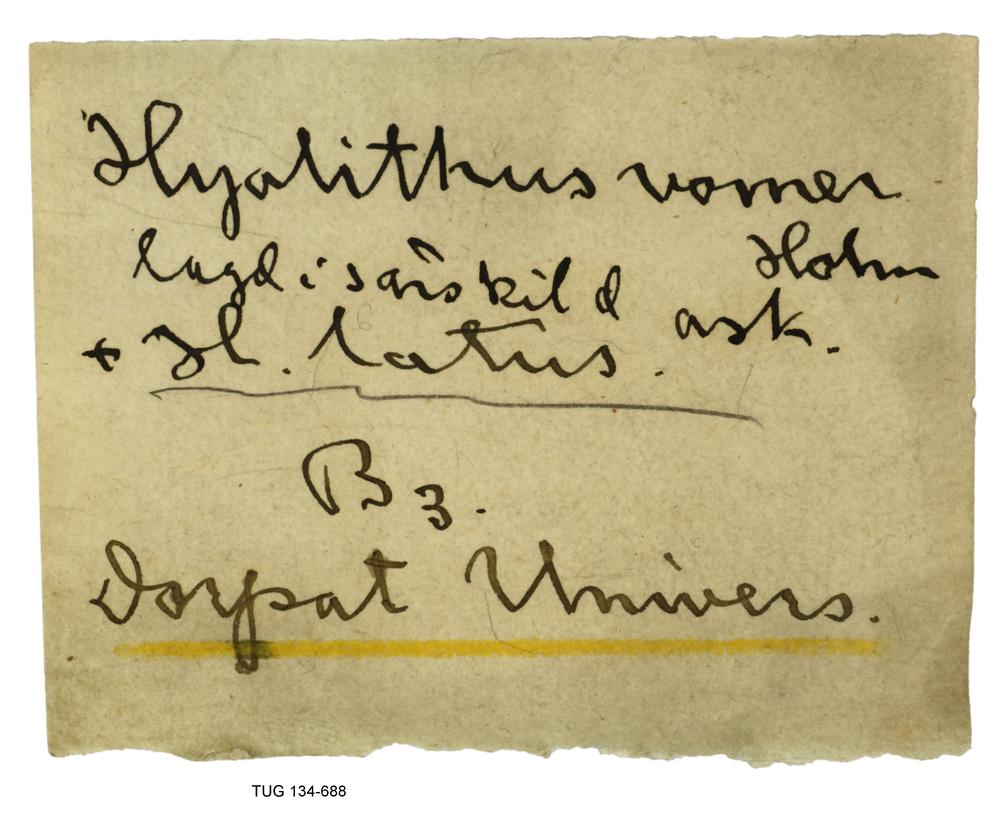 Hyolithus vomer
Holm
lagd i särskild ask.
+ H. latus.
B3.
Dorpat Univers.
TUG 134-688